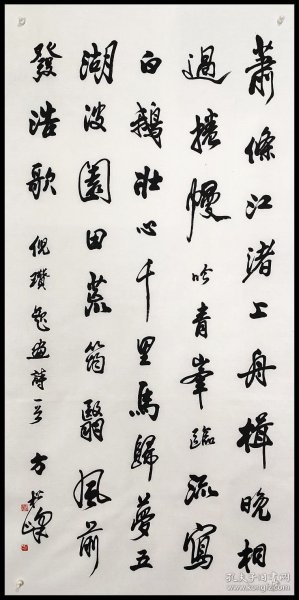 蕭條江渚上舟楫晚相
過捲幔吟青峯臨流寫
白鵝壯心千里馬歸夢五
湖波園田荒筠翳風前
發浩歌 倪瓚題畫詩一首 方
孔夫子旧书网